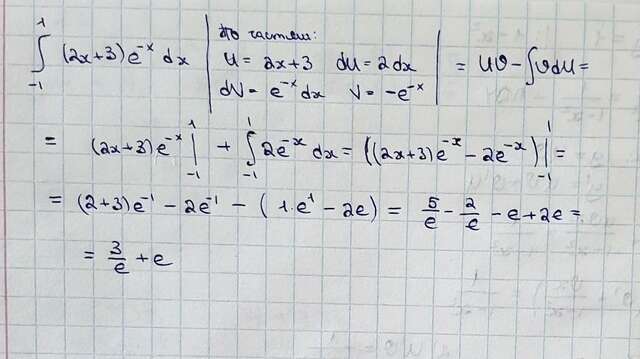 ∫₋₁¹ (2x+3)e⁻ˣ dx | по частям: u = 2x+3 du = 2dx dV = e⁻ˣdx V = -e⁻ˣ | = UV - ∫VdU =
= (2x+3)e⁻ˣ |₋₁¹ + ∫₋₁¹ 2e⁻ˣ dx = ((2x+3)e⁻ˣ - 2e⁻ˣ)|₋₁¹ =
= (2+3)e⁻¹ - 2e⁻¹ - (1·e¹ - 2e) = 5/e - 2/e - e + 2e =
= 3/e + e